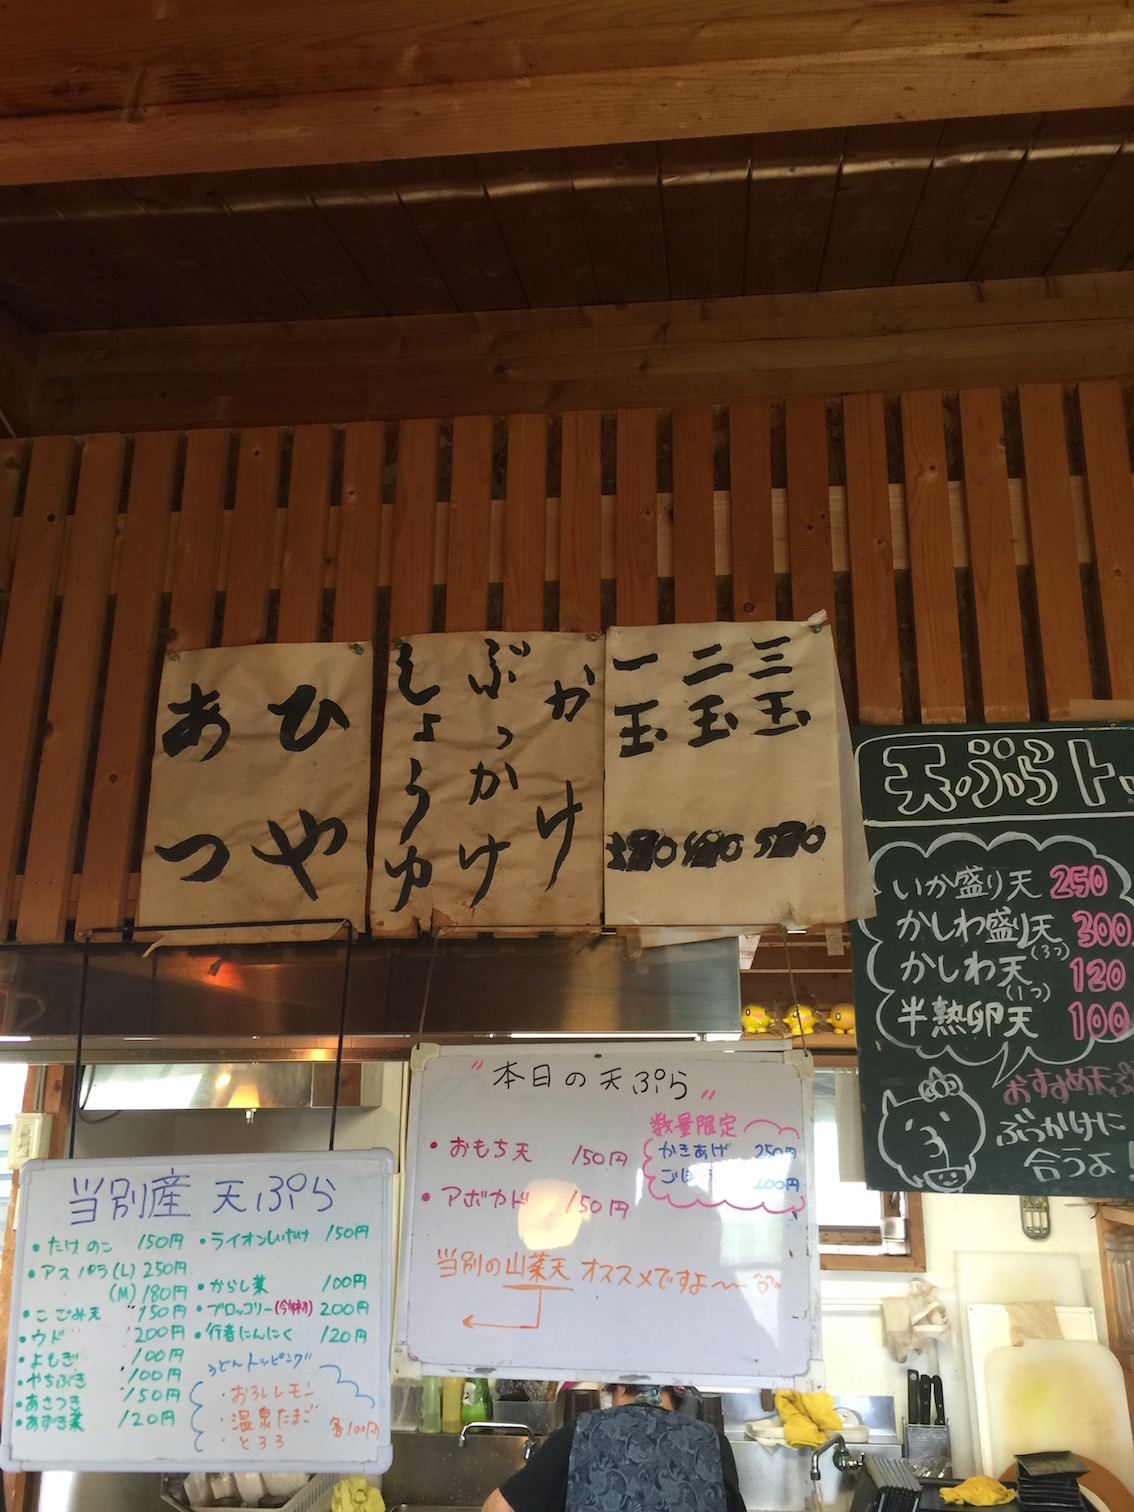 ひや
あつ
かけ
ぶっかけ
しょうゆ
三玉
二玉
一玉
天ぷらト
いか盛り天 250
かしわ盛り天 300
(3つ)
かしわ天 120
(1つ)
半熟卵天 100
おすすめ天ぷ
ぶっかけに
合うよ!
"本日の天ぷら"
・おもち天 150円
・アボカド 150円
数量限定
かきあげ 250円
200円
当別の山菜天 オススメですよ〜〜
当別産 天ぷら
・たけのこ 150円
・アスパラ(L) 250円
(M) 180円
・こごみ天 150円
・ウド 200円
・よもぎ 100円
・やちぶき 100円
・あさつき 150円
・あずき菜 120円
・ライオンしいたけ 150円
・からし菜 100円
・ブロッコリー(今年初) 200円
・行者にんにく 120円
うどんトッピング
・おろしレモン
・温泉たまご
・とろろ
各100円